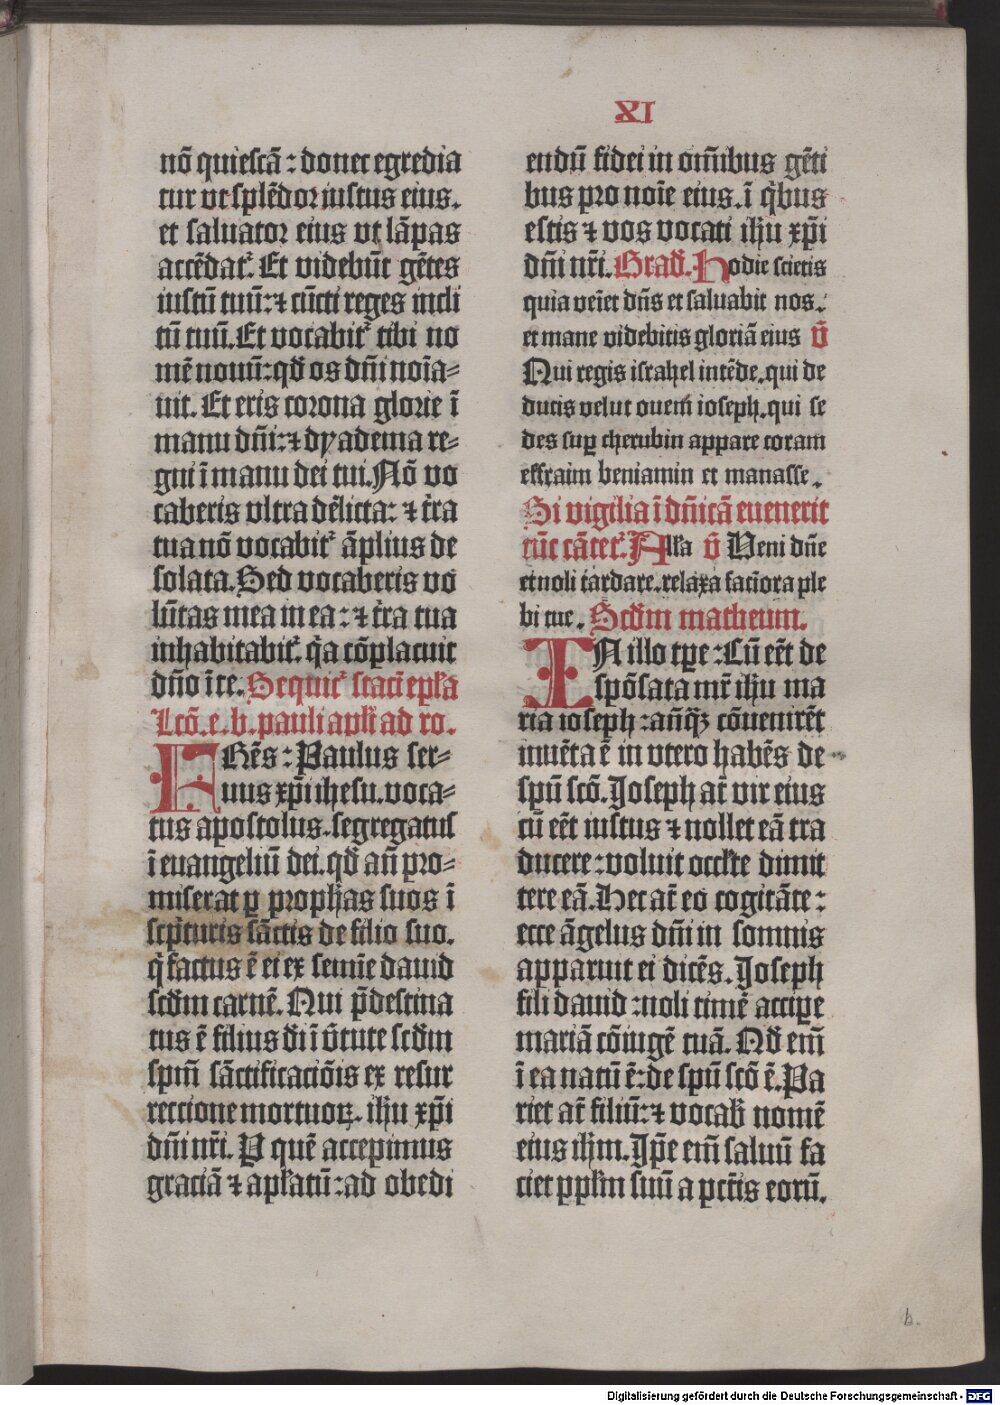 XI
nō quiescā : donec egredia
tur vt splēdor iustus eius.
et saluator eius vt lāpas
accēdat᷑. Et videbūt gētes
iustū tuū: ⁊ cūcti reges incli
tū tuū. Et vocabit᷑ tibi no
mē nouū: qd̄ os dn̄i noīa⸗
uit. Et eris corona glorie ī
manu dn̄i: ⁊ dyadema re⸗
gni ī manu dei tui. Nō vo
caberis vltra dēlicta: ⁊ t̄ra
tua nō vocabit᷑ āplius de
solata. Sed vocaberis vo
lūtas mea in ea: ⁊ t̄ra tua
inhabitabit᷑. q̄a cōplacuit
dn̄o ī te. Sequit᷑ stacī epl̄a
Lcō. e. b. pauli apl̄i ad ro.
FRēs : Paulus ser⸗
uus xp̄i ihesu. voca⸗
tus apostolus. segregatus
ī euangeliū dei. qd̄ an̄ pro⸗
miserat ꝑ proph̄as suos ī
scp̄turis sāctis de filio suo.
q̄ factus ē ei ex semīe dauid
scd̄m carnē. Qui p̄destina
tus ē filius di̅ ī v̄tute scd̄m
spm̄ sāctificaciōis ex resur
reccione mortuoꝝ. ih̄u xp̄i
dn̄i nr̄i. P quē accepimus
graciā ⁊ apl̄atū: ad obedi
endū fidei in om̄ibus gēti
bus pro noīe eius. ī q̄bus
estis ⁊ vos vocati ih̄u xp̄i
dn̄i nr̄i. Grad̄. Hodie scietis
quia veīet dn̄s et saluabit nos.
et mane videbitis gloriā eius v̄
Qui regis israhel intēde. qui de
ducis velut ouem̄ ioseph. qui se
des suꝑ cherubin appare coram
effraim beniamin et manasse.
Si vigilia ī dn̄icā euenerit
tūc cātet᷑. All̄a v̄ Veni dn̄e
et noli tardare. relaxa faciora ple
bi tue. Scd̄m matheum.
IN illo tꝑe : Cū eēt de
spōsata mr̄ ih̄u ma
ria ioseph : an̄qꝫ cōuenirēt
inuēta ē in vtero habēs de
spū scō. Joseph at̄ vir eius
cū eēt iustus ⁊ nollet eā tra
ducere : voluit occl̄te dimit
tere eā. Hec at̄ eo cogitāte :
ecce āgelus dn̄i in somnis
apparuit ei dicēs. Joseph
fili dauid : noli timē accipe
mariā cōiugē tuā. Qd̄ em̄
ī ea natū ē: de spū scō ē. Pa
riet at̄ filiū: ⁊ vocab̄ nomē
eius ih̄m. Jp̄e em̄ saluū fa
ciet ppl̄m suū a pct̄is eorū.
b.
Digitalisierung gefördert durch die Deutsche Forschungsgemeinschaft - DFG